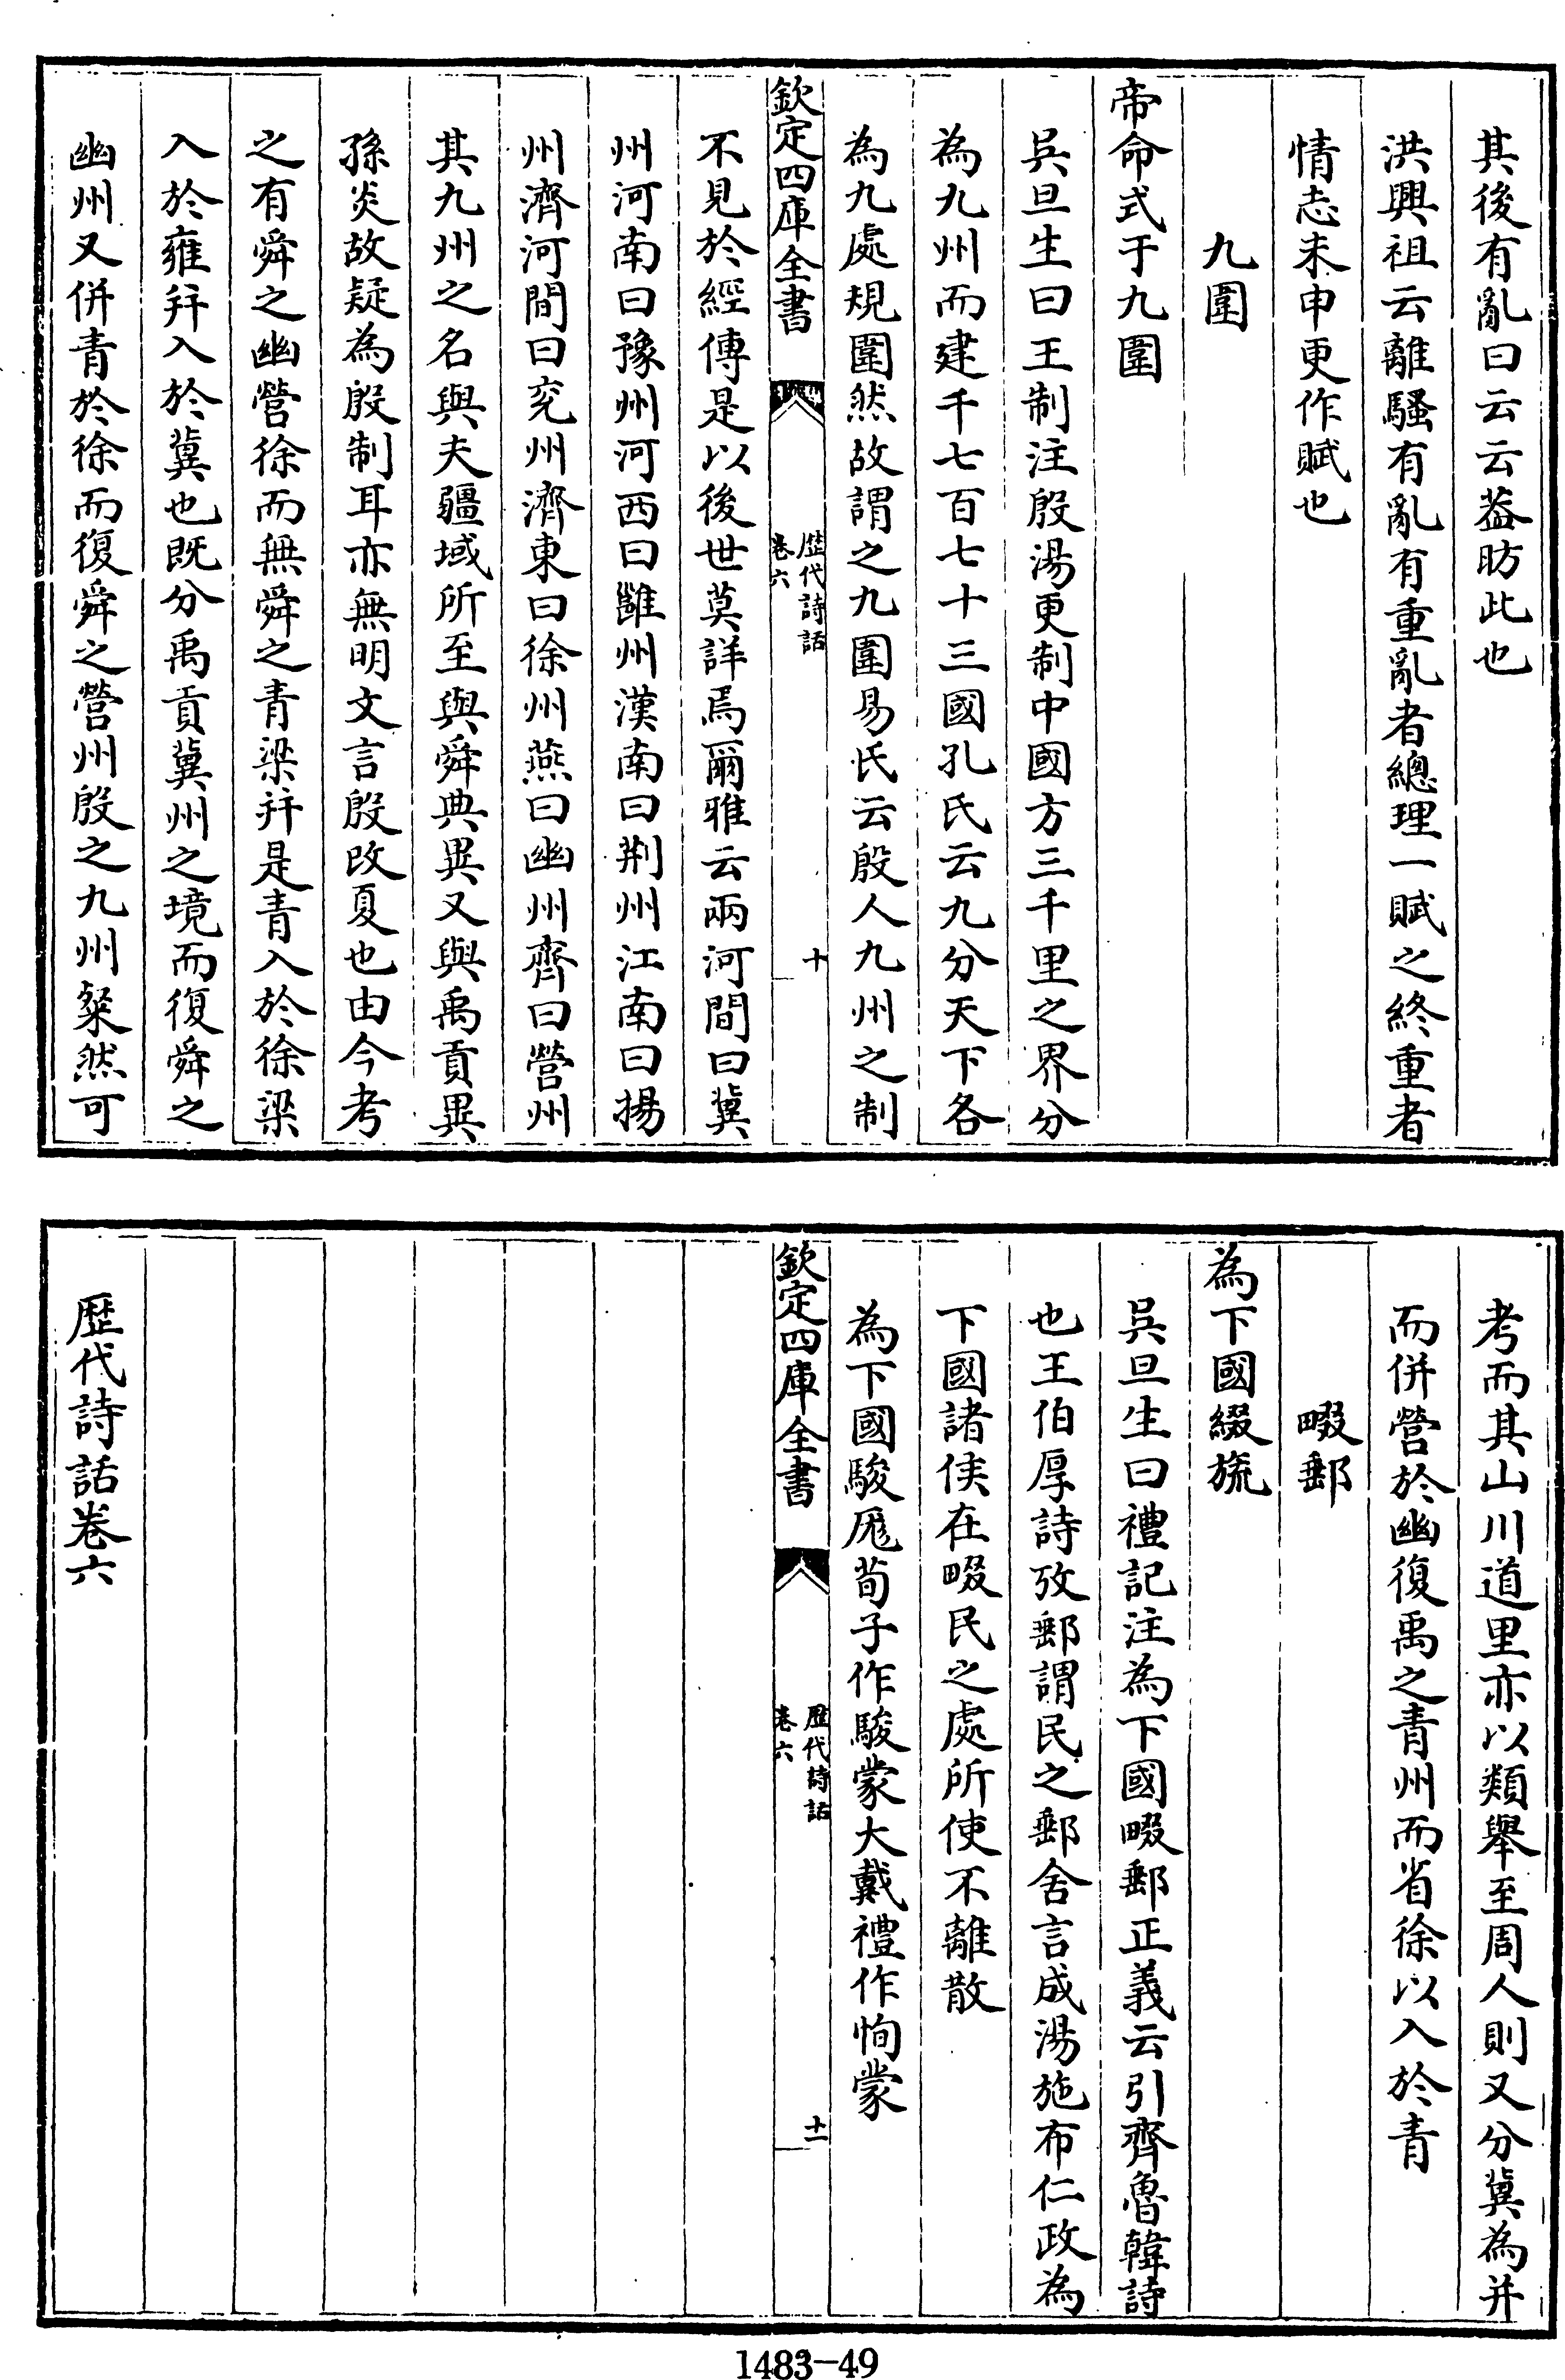 其後有亂曰云云葢昉此也
洪興祖云離騷有亂有重亂者總理一賦之終重者
情志未申更作賦也
九圍
帝命式于九圍
吳旦生曰王制注殷湯更制中國方三千里之界分
為九州而建千七百七十三國孔氏云九分天下各
為九處規圍然故謂之九圍易氏云殷人九州之制
欽定四庫全書
歴代詩話
卷六
十
不見於經傳是以後世莫詳焉爾雅云兩河間曰冀
州河南曰豫州河西曰雝州漢南曰荆州江南曰揚
州濟河間曰兖州濟東曰徐州燕曰幽州齊曰營州
其九州之名與夫疆域所至與舜典異又與禹貢異
孫炎故疑為殷制耳亦無明文言殷改夏也由今考
之有舜之幽營徐而無舜之青梁并是青入於徐梁
入於雍并入於冀也既分禹貢冀州之境而復舜之
幽州又併青於徐而復舜之營州殷之九州粲然可
考而其山川道里亦以類舉至周人則又分冀為并
而併營於幽復禹之青州而省徐以入於青
畷郵
為下國綴旒
吳旦生曰禮記注為下國畷郵正義云引齊魯韓詩
也王伯厚詩攷郵謂民之郵舍言成湯施布仁政為
下國諸侯在畷民之處所使不離散
為下國駿厖荀子作駿蒙大戴禮作恂蒙
欽定四庫全書
歴代詩話
卷六
十一
歴代詩話卷六
1483-49